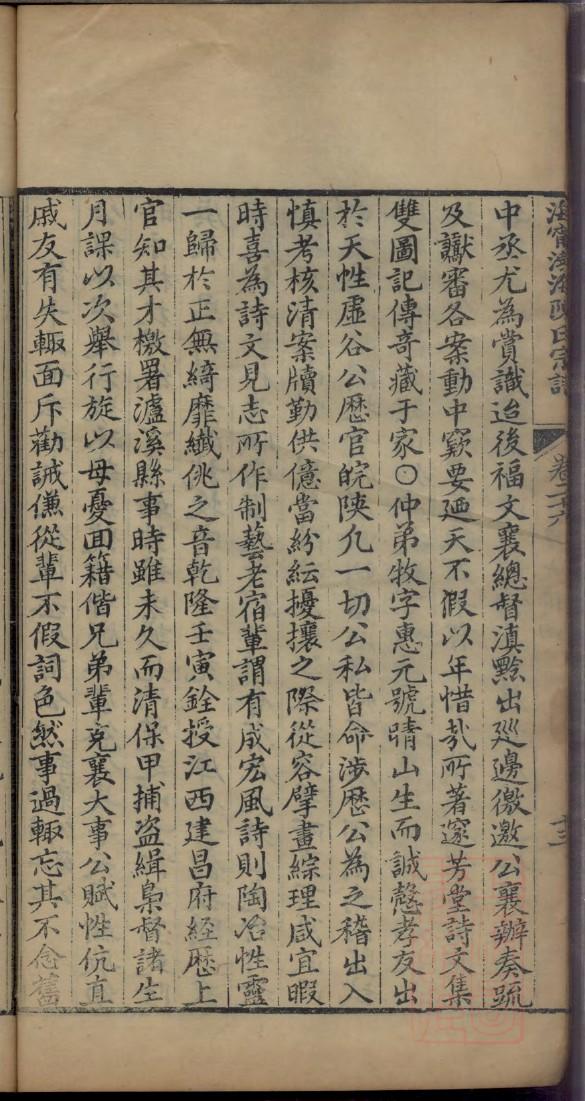 中丞尤為賞識迨後福文襄總督滇黔出廵邊徼邀公襄辦奏疏
及讞審各案動中窽要廼天不假以年惜㢤所著邃芳堂詩文集
雙圖記傳奇藏于家〇仲弟牧字惠元號晴山生而誠慤孝友出
於天性虛谷公歷官皖陝凢一切公私皆命涉歷公為之稽出入
慎考核清案牘勤供億當紛紜擾攘之際從容擘畫綜理咸宜暇
時喜為詩文見志所作制藝老宿輩謂有成宏風詩則陶冶性靈
一歸於正無綺靡纖佻之音乾隆壬寅銓授江西建昌府経歷上
官知其才檄署瀘溪縣事時雖未久而清保甲捕盗緝梟督諸生
月課以次舉行旋以母憂囬籍偕兄弟輩克襄大事公賦性伉直
戚友有失輙面斥勸誡傔從輩不假詞色然事過輙忘其不念舊
海寧渤海陳氏宗譜
卷二六
十三